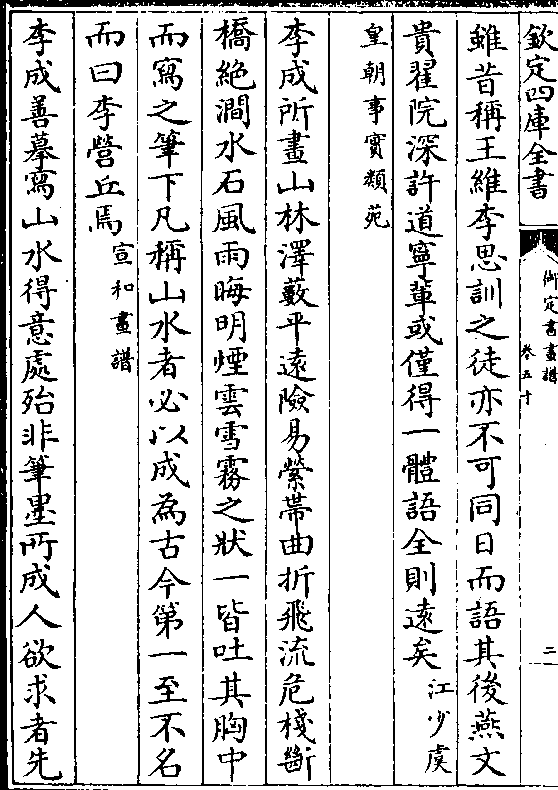 欽定四庫全書
御定書畫譜
卷五十
二
雖昔稱王維李思訓之徒亦不可同日而語其後燕文
貴翟院深許道寧輩或僅得一體語全則遠矣江少虞
皇朝事實類苑
李成所畫山林澤藪平遠險易縈帶曲折飛流危棧斷
橋絶澗水石風雨晦明煙雲雪霧之狀一皆吐其胸中
而寫之筆下凡稱山水者必以成為古今第一至不名
而曰李營丘焉宣和畫譜
李成善摹寫山水得意處殆非筆墨所成人欲求者先